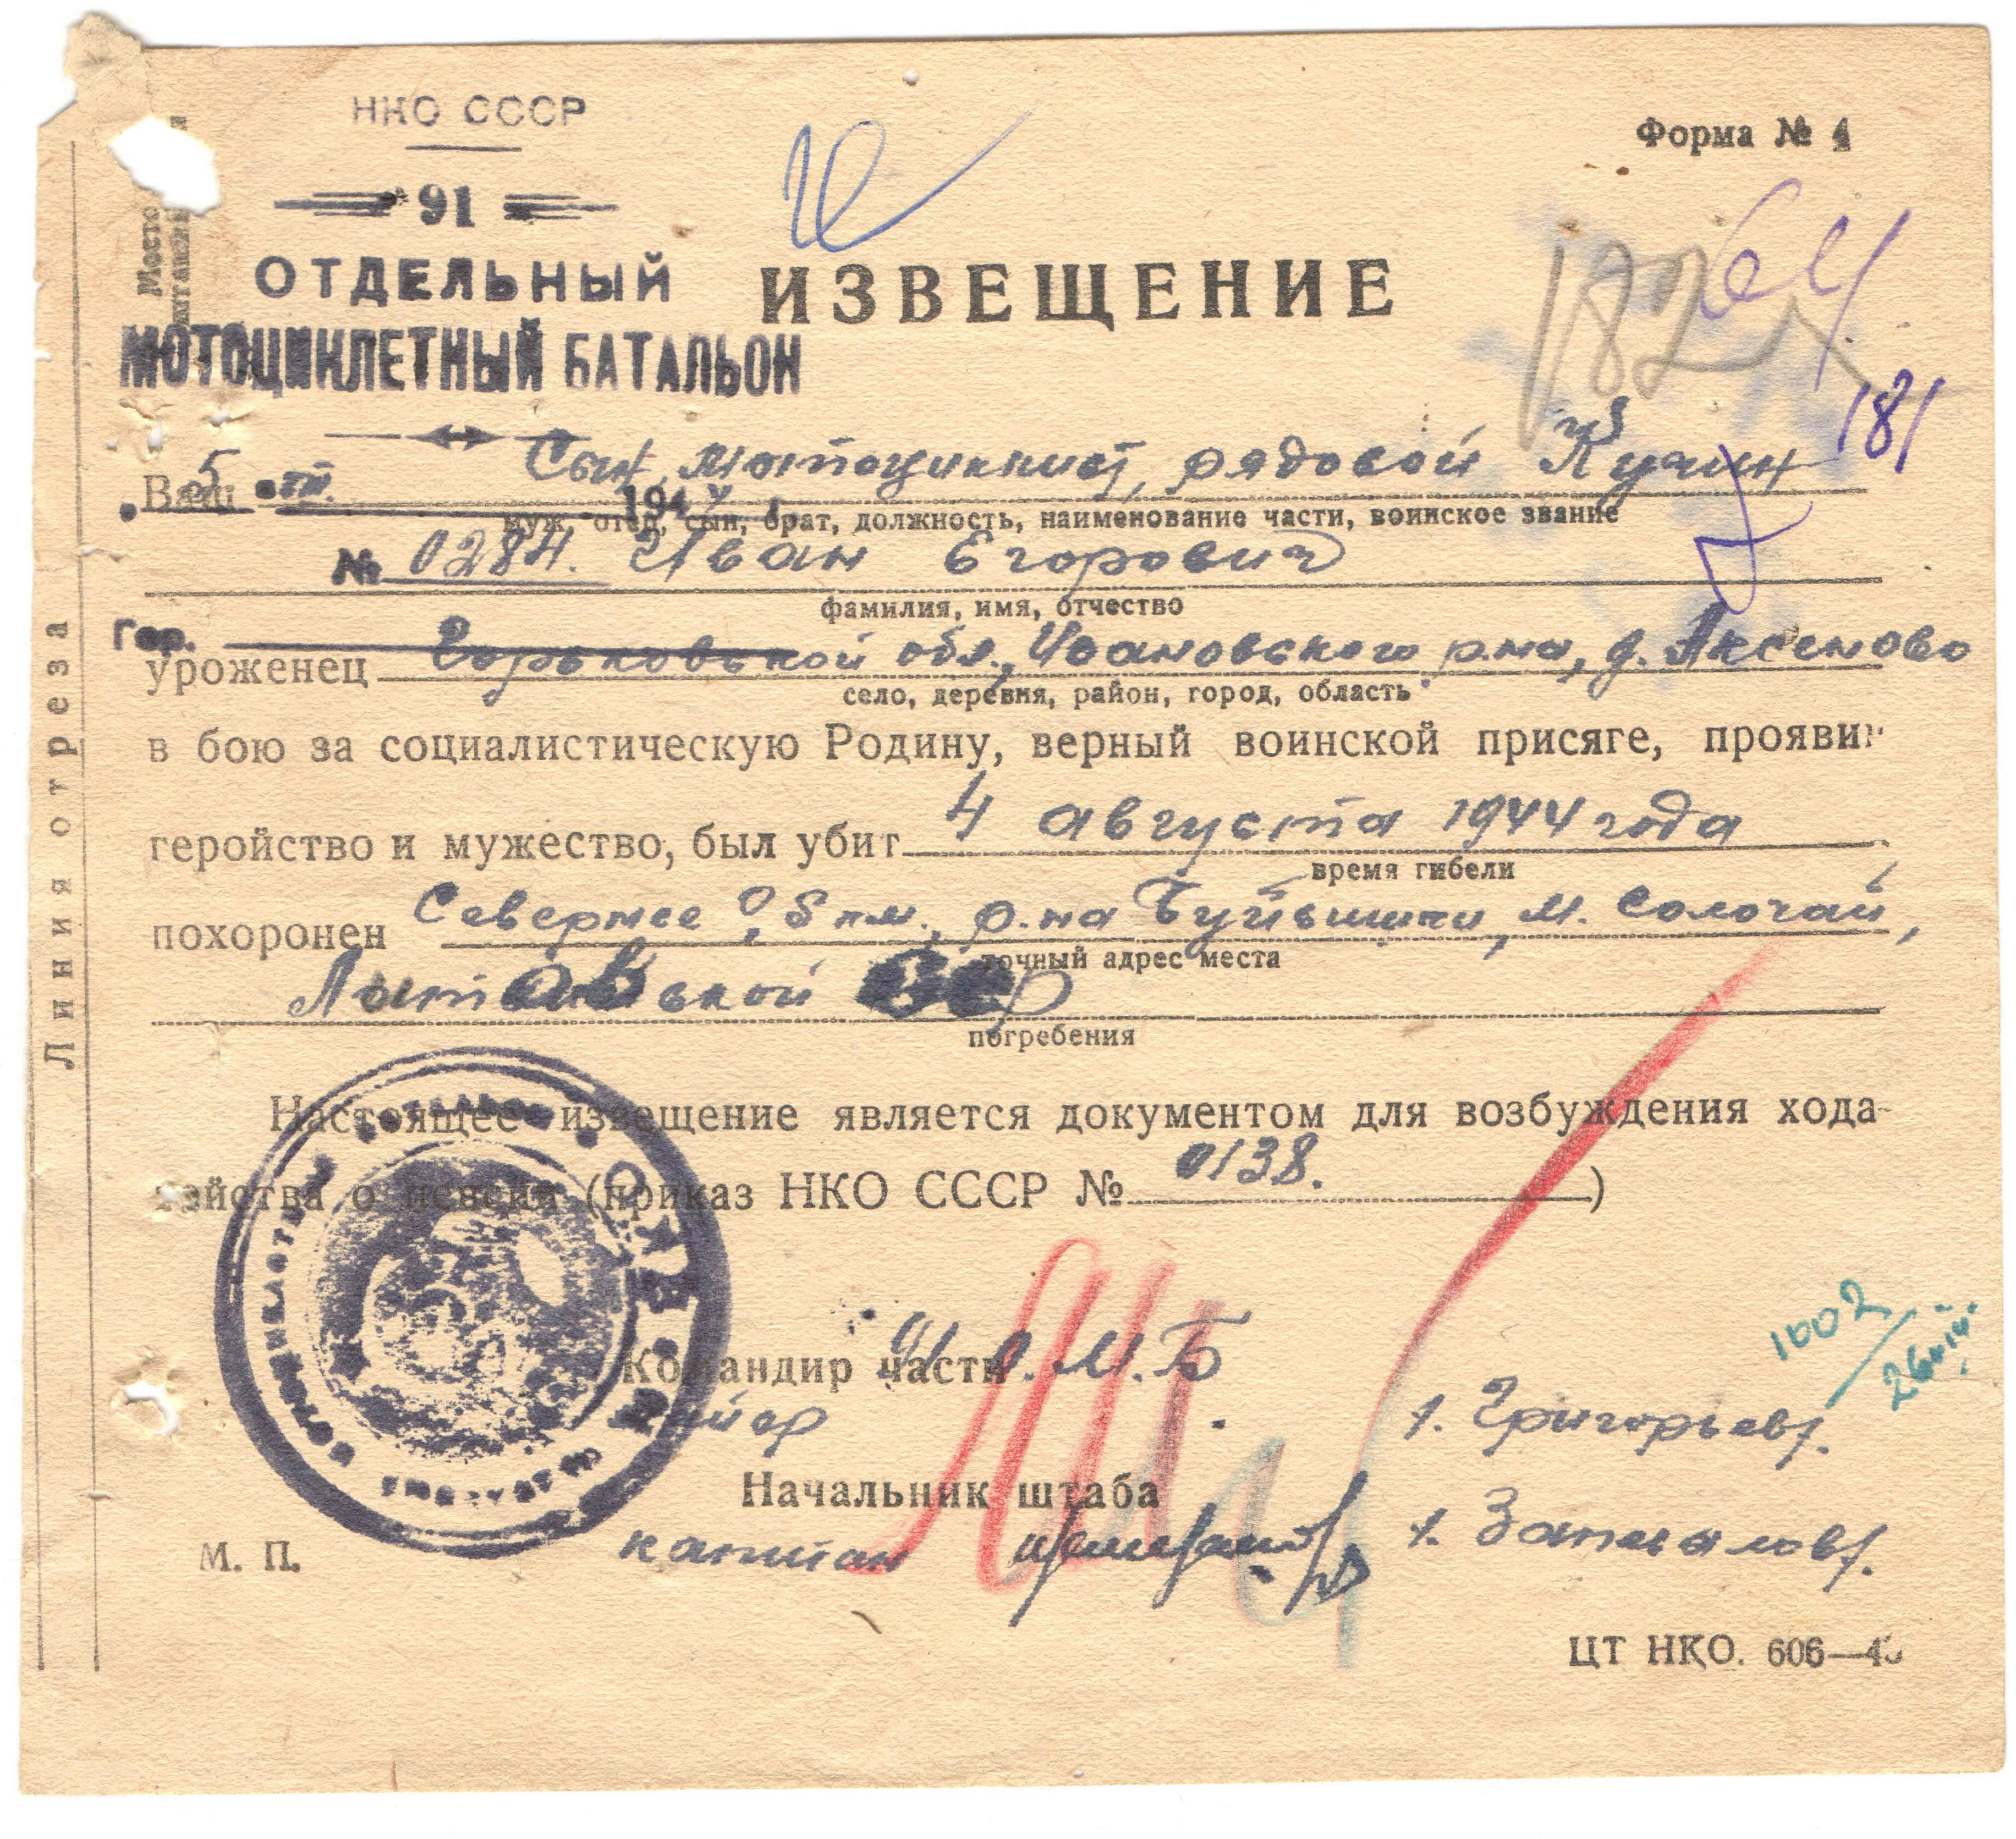 НКО СССР
Форма № 4
91
ОТДЕЛЬНЫЙ
МОТОЦИКЛЕТНЫЙ БАТАЛЬОН
ИЗВЕЩЕНИЕ
182
64
181
Ваш Сын, мотоциклист, рядовой Кучин
5 194
муж, отец, сын, брат, должность, наименование части, воинское звание
№ 0284. Иван Егорович
фамилия, имя, отчество
Гор.
уроженец Горьковской обл., Ивановского р-на, д. Аксеново
село, деревня, район, город, область
в бою за социалистическую Родину, верный воинской присяге, проявив
геройство и мужество, был убит 4 августа 1944 года
время гибели
похоронен Севернее 0,5 км., р-на Буйвишки, м. Солочай,
точный адрес места
Литовской ССР
погребения
Настоящее извещение является документом для возбуждения хода-
тайства о пенсии (приказ НКО СССР № 0138.)
Командир части О.М.Б.
майор /. Григорьев/.
1002
26
Начальник штаба
капитан /. Запевалов/.
М. П.
ЦТ НКО. 606—43
Линия отреза